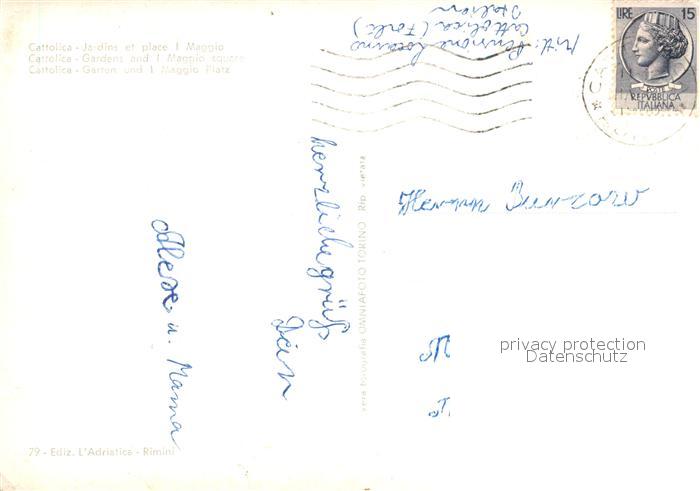 Cattolica - Jardins et place I Maggio
Cattolica - Gardens and I Maggio square
Cattolica - Garten und I Maggio Platz
Mitt: Pensione Locarno
Cattolica (Forlì)
Italien
LIRE 15
POSTE
REPVBBLICA
ITALIANA
herzlichegrüß
Dein
Alex u. Mama
vera fotografia OMNIAFOTO TORINO Rip. vietata
Herrn
M
T.
privacy protection
Datenschutz
79 - Ediz. L'Adriatica - Rimini